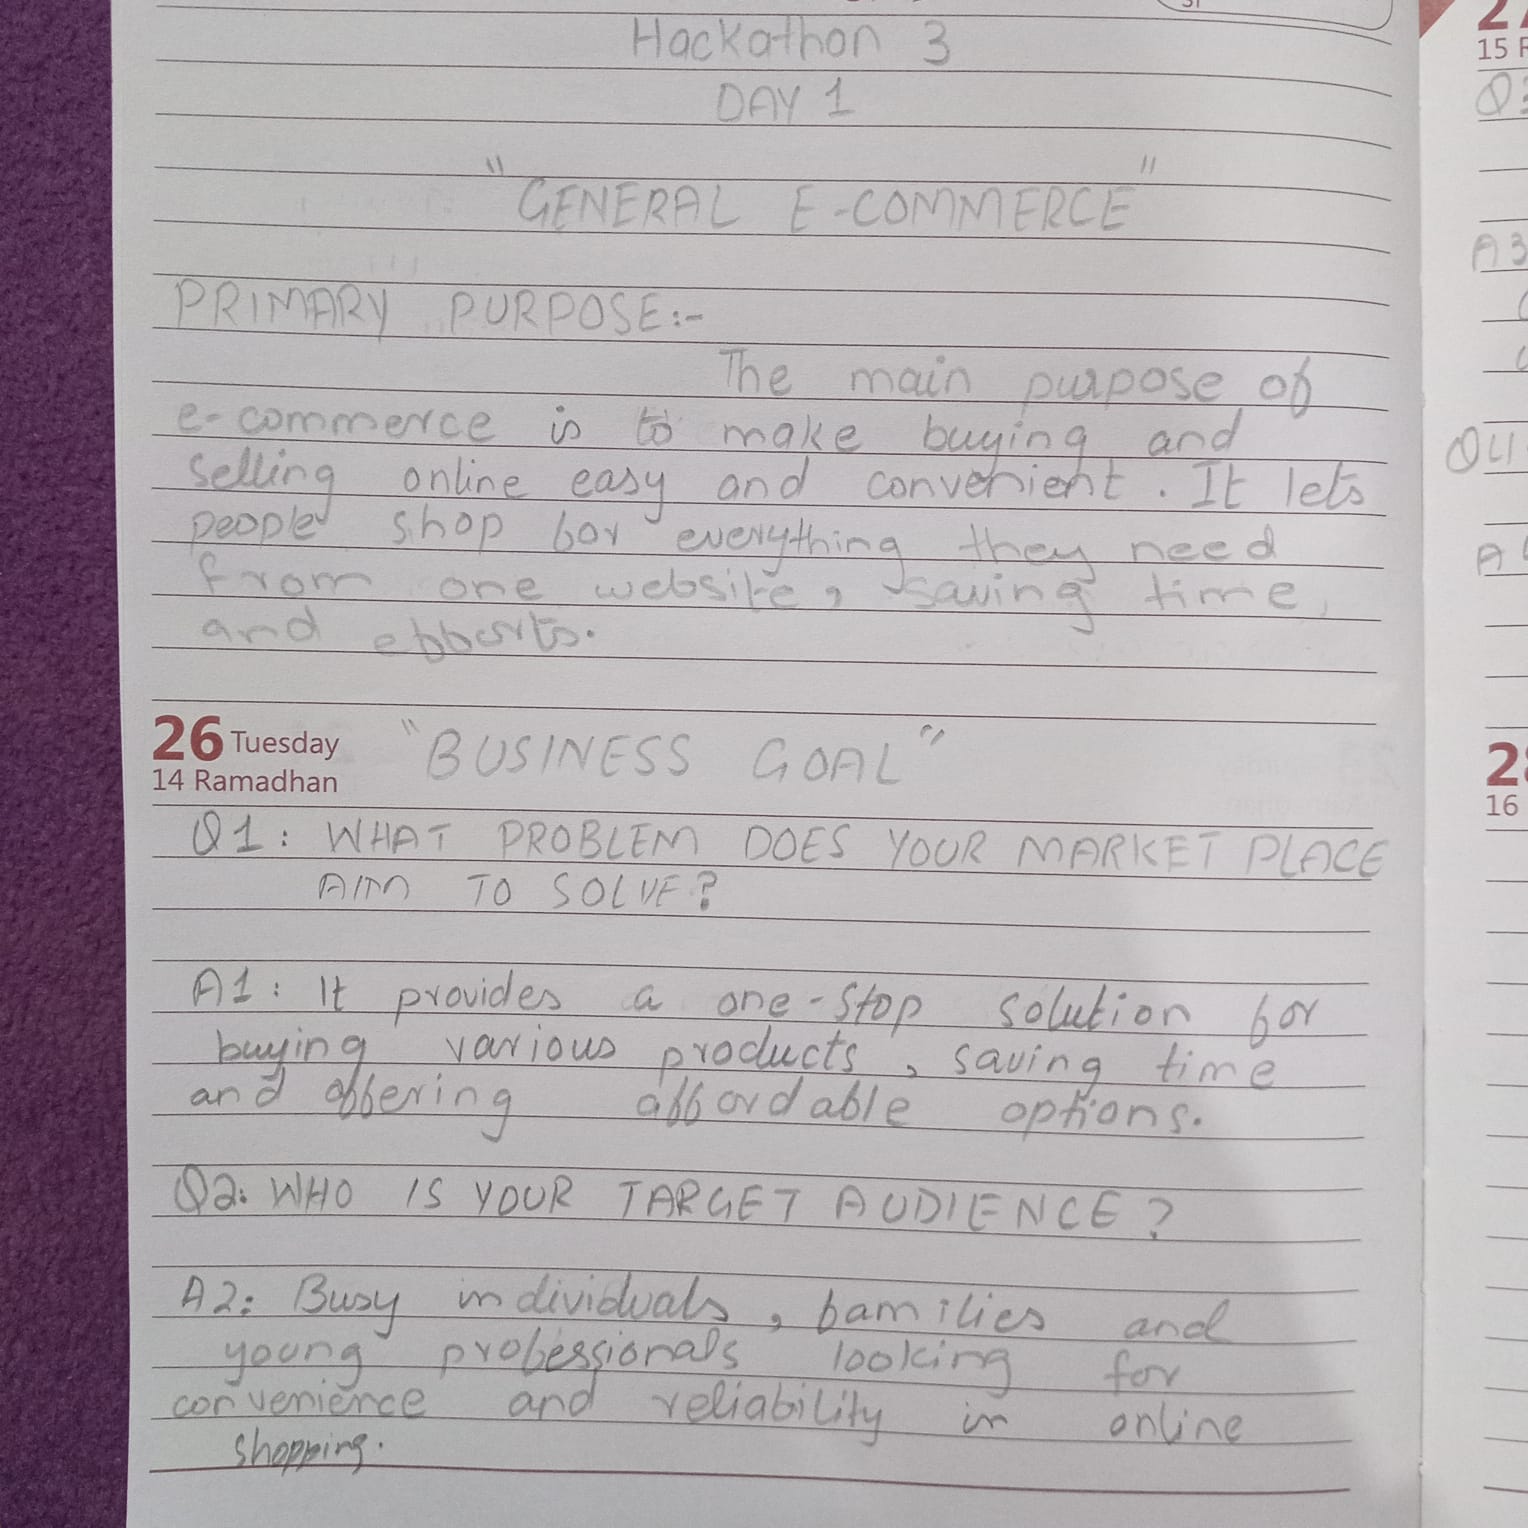 Hackathon 3
DAY 1
"GENERAL E-COMMERCE"
PRIMARY PURPOSE:-
The main purpose of
e-commerce is to make buying and
selling online easy and convenient. It lets
people shop for everything they need
from one website, saving time
and efforts.
26 Tuesday
14 Ramadhan
"BUSINESS GOAL"
Q1: WHAT PROBLEM DOES YOUR MARKET PLACE
AIM TO SOLVE?
A1: It provides a one-stop solution for
buying various products, saving time
and offering affordable options.
Q2: WHO IS YOUR TARGET AUDIENCE?
A2: Busy individuals, families and
young professionals looking for
convenience and reliability in online
shopping.
15
A3
Q4
A
16